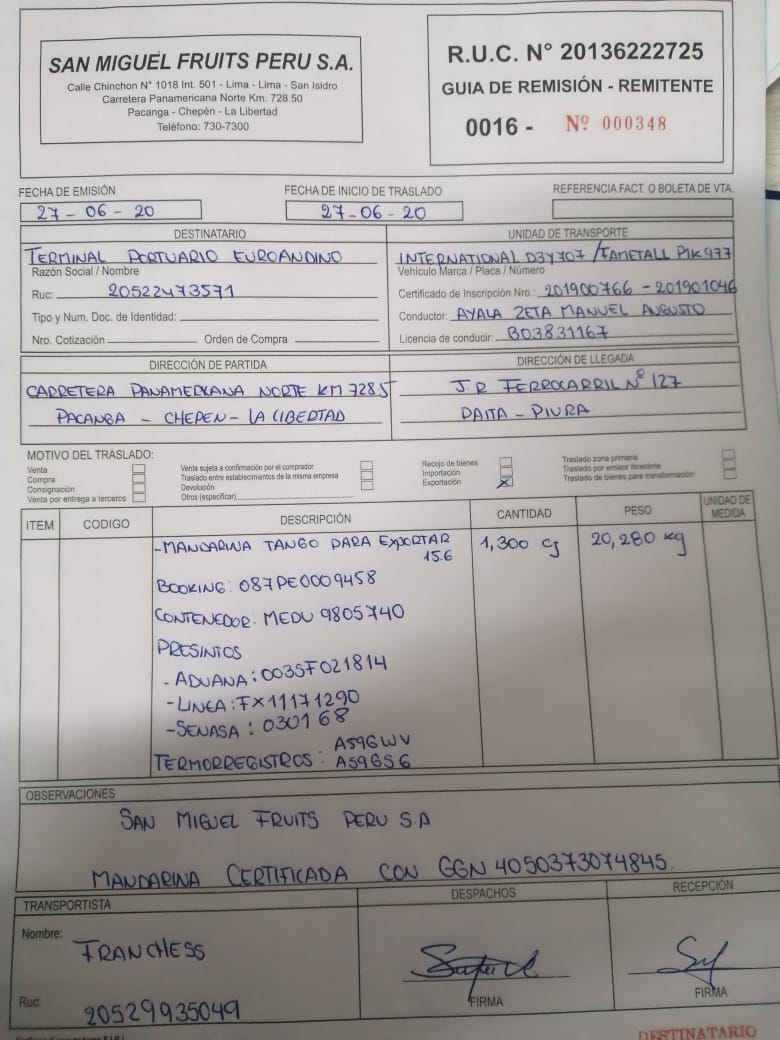 SAN MIGUEL FRUITS PERU S.A.
Calle Chinchon N° 1018 Int. 501 - Lima - Lima - San Isidro
Carretera Panamericana Norte Km. 728.50
Pacanga - Chepén - La Libertad
Teléfono: 730-7300
R.U.C. N° 20136222725
GUIA DE REMISIÓN - REMITENTE
0016 - Nº 000348
FECHA DE EMISIÓN
27-06-20
FECHA DE INICIO DE TRASLADO
27-06-20
REFERENCIA FACT. O BOLETA DE VTA.
DESTINATARIO
TERMINAL PORTUARIO EUROANDINO
Razón Social / Nombre
Ruc: 20522473571
Tipo y Num. Doc. de Identidad:
Nro. Cotización Orden de Compra
UNIDAD DE TRANSPORTE
INTERNATIONAL D3Y707 / FAMETALL P1K977
Vehículo Marca / Placa / Número
Certificado de Inscripción Nro.: 201900766 - 201901046
Conductor: AYALA ZETA MANUEL AUGUSTO
Licencia de conducir: B03831167
DIRECCIÓN DE PARTIDA
CARRETERA PANAMERICANA NORTE KM 728.5
PACANGA - CHEPEN - LA LIBERTAD
DIRECCIÓN DE LLEGADA
J.R FERROCARRIL Nº 127
PAITA - PIURA
MOTIVO DEL TRASLADO:
Venta
Compra
Consignación
Venta por entrega a terceros
Venta sujeta a confirmación por el comprador
Traslado entre establecimientos de la misma empresa
Devolución
Otros (especificar)
Recojo de bienes
Importación
Exportación X
Traslado zona primaria
Traslado por emisor itinerante
Traslado de bienes para transformación
ITEM CODIGO DESCRIPCIÓN CANTIDAD PESO UNIDAD DE MEDIDA
-MANDARINA TANGO PARA EXPORTAR 1,300 cj 20,280 kg
15.6
BOOKING: 087PE0009458
CONTENEDOR: MEDU 9805740
PRESINTOS
- ADUANA: 003SF021814
- LINEA: FX11171290
- SENASA: 030168
TERMORREGISTROS: A59GWV
A59GS6
OBSERVACIONES
SAN MIGUEL FRUITS PERU S.A
MANDARINA CERTIFICADA CON GGN 4050373074845.
TRANSPORTISTA
Nombre: FRANCHESS
Ruc: 20529935049
DESPACHOS
FIRMA
RECEPCIÓN
FIRMA
DESTINATARIO